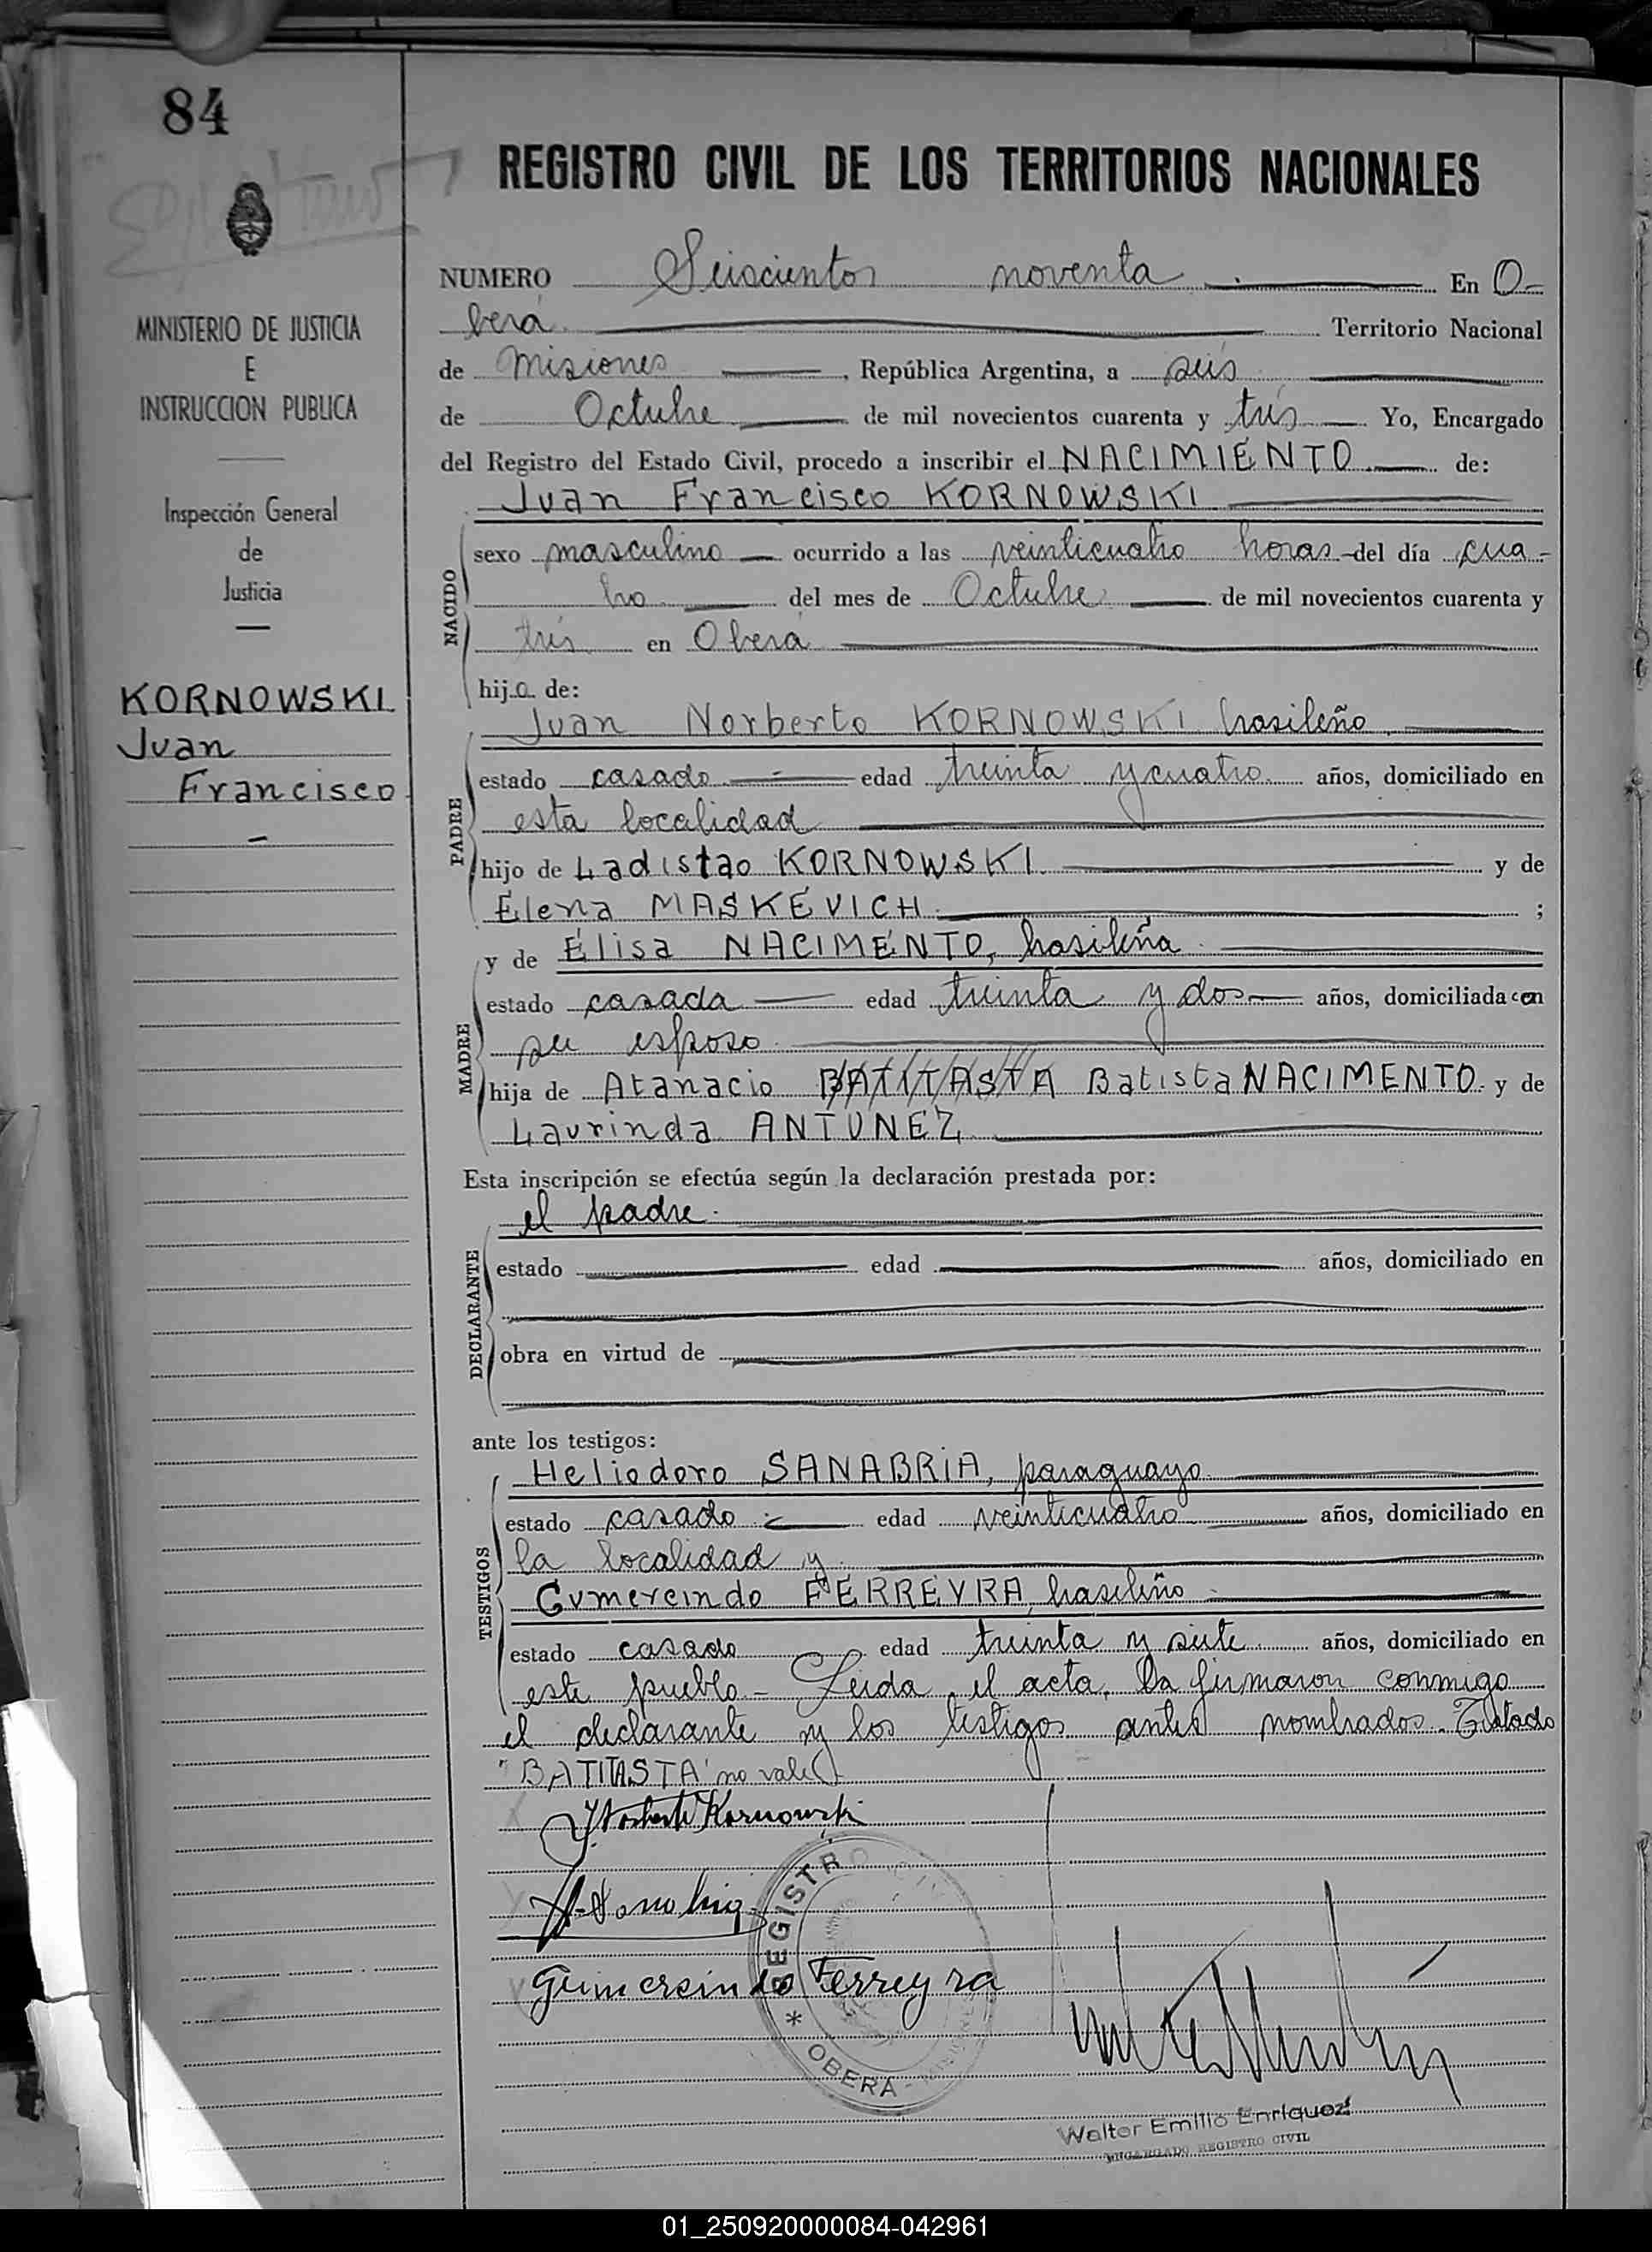 84
REGISTRO CIVIL DE LOS TERRITORIOS NACIONALES
MINISTERIO DE JUSTICIA
E
INSTRUCCION PUBLICA
Inspección General
de
Justicia
KORNOWSKI
Juan
Francisco
NUMERO Seiscientos noventa En O-
berá Territorio Nacional
de Misiones, República Argentina, a seis
de Octubre de mil novecientos cuarenta y tres Yo, Encargado
del Registro del Estado Civil, procedo a inscribir el NACIMIENTO de:
Juan Francisco KORNOWSKI
NACIDO
sexo masculino ocurrido a las veinticuatro horas del día cua-
tro del mes de Octubre de mil novecientos cuarenta y
tres en Oberá
hijo de:
Juan Norberto KORNOWSKI brasileño
PADRE
estado casado edad treinta y cuatro años, domiciliado en
esta localidad
hijo de Ladistao KORNOWSKI y de
Elena MASKEVICH ;
y de Elisa NACIMENTO, brasileña
MADRE
estado casada edad treinta y dos años, domiciliada con
su esposo
hija de Atanacio BATITASTA Batista NACIMENTO y de
Laurinda ANTUNEZ
Esta inscripción se efectúa según la declaración prestada por:
el padre.
DECLARANTE
estado edad años, domiciliado en
obra en virtud de
ante los testigos:
TESTIGOS
Heliodoro SANABRIA, paraguayo
estado casado edad veinticuatro años, domiciliado en
la localidad y
Gumercindo FERREYRA, brasileño
estado casado edad treinta y siete años, domiciliado en
este pueblo.- Leida el acta, la firmaron conmigo
el declarante y los testigos antes nombrados. Testado
"BATITASTA" no vale
J Norberto Kornowski
Gumersindo Ferreyra
REGISTRO CIVIL
* OBERÁ -
Walter Emilio Enriquez
ENCARGADO REGISTRO CIVIL
01_250920000084-042961